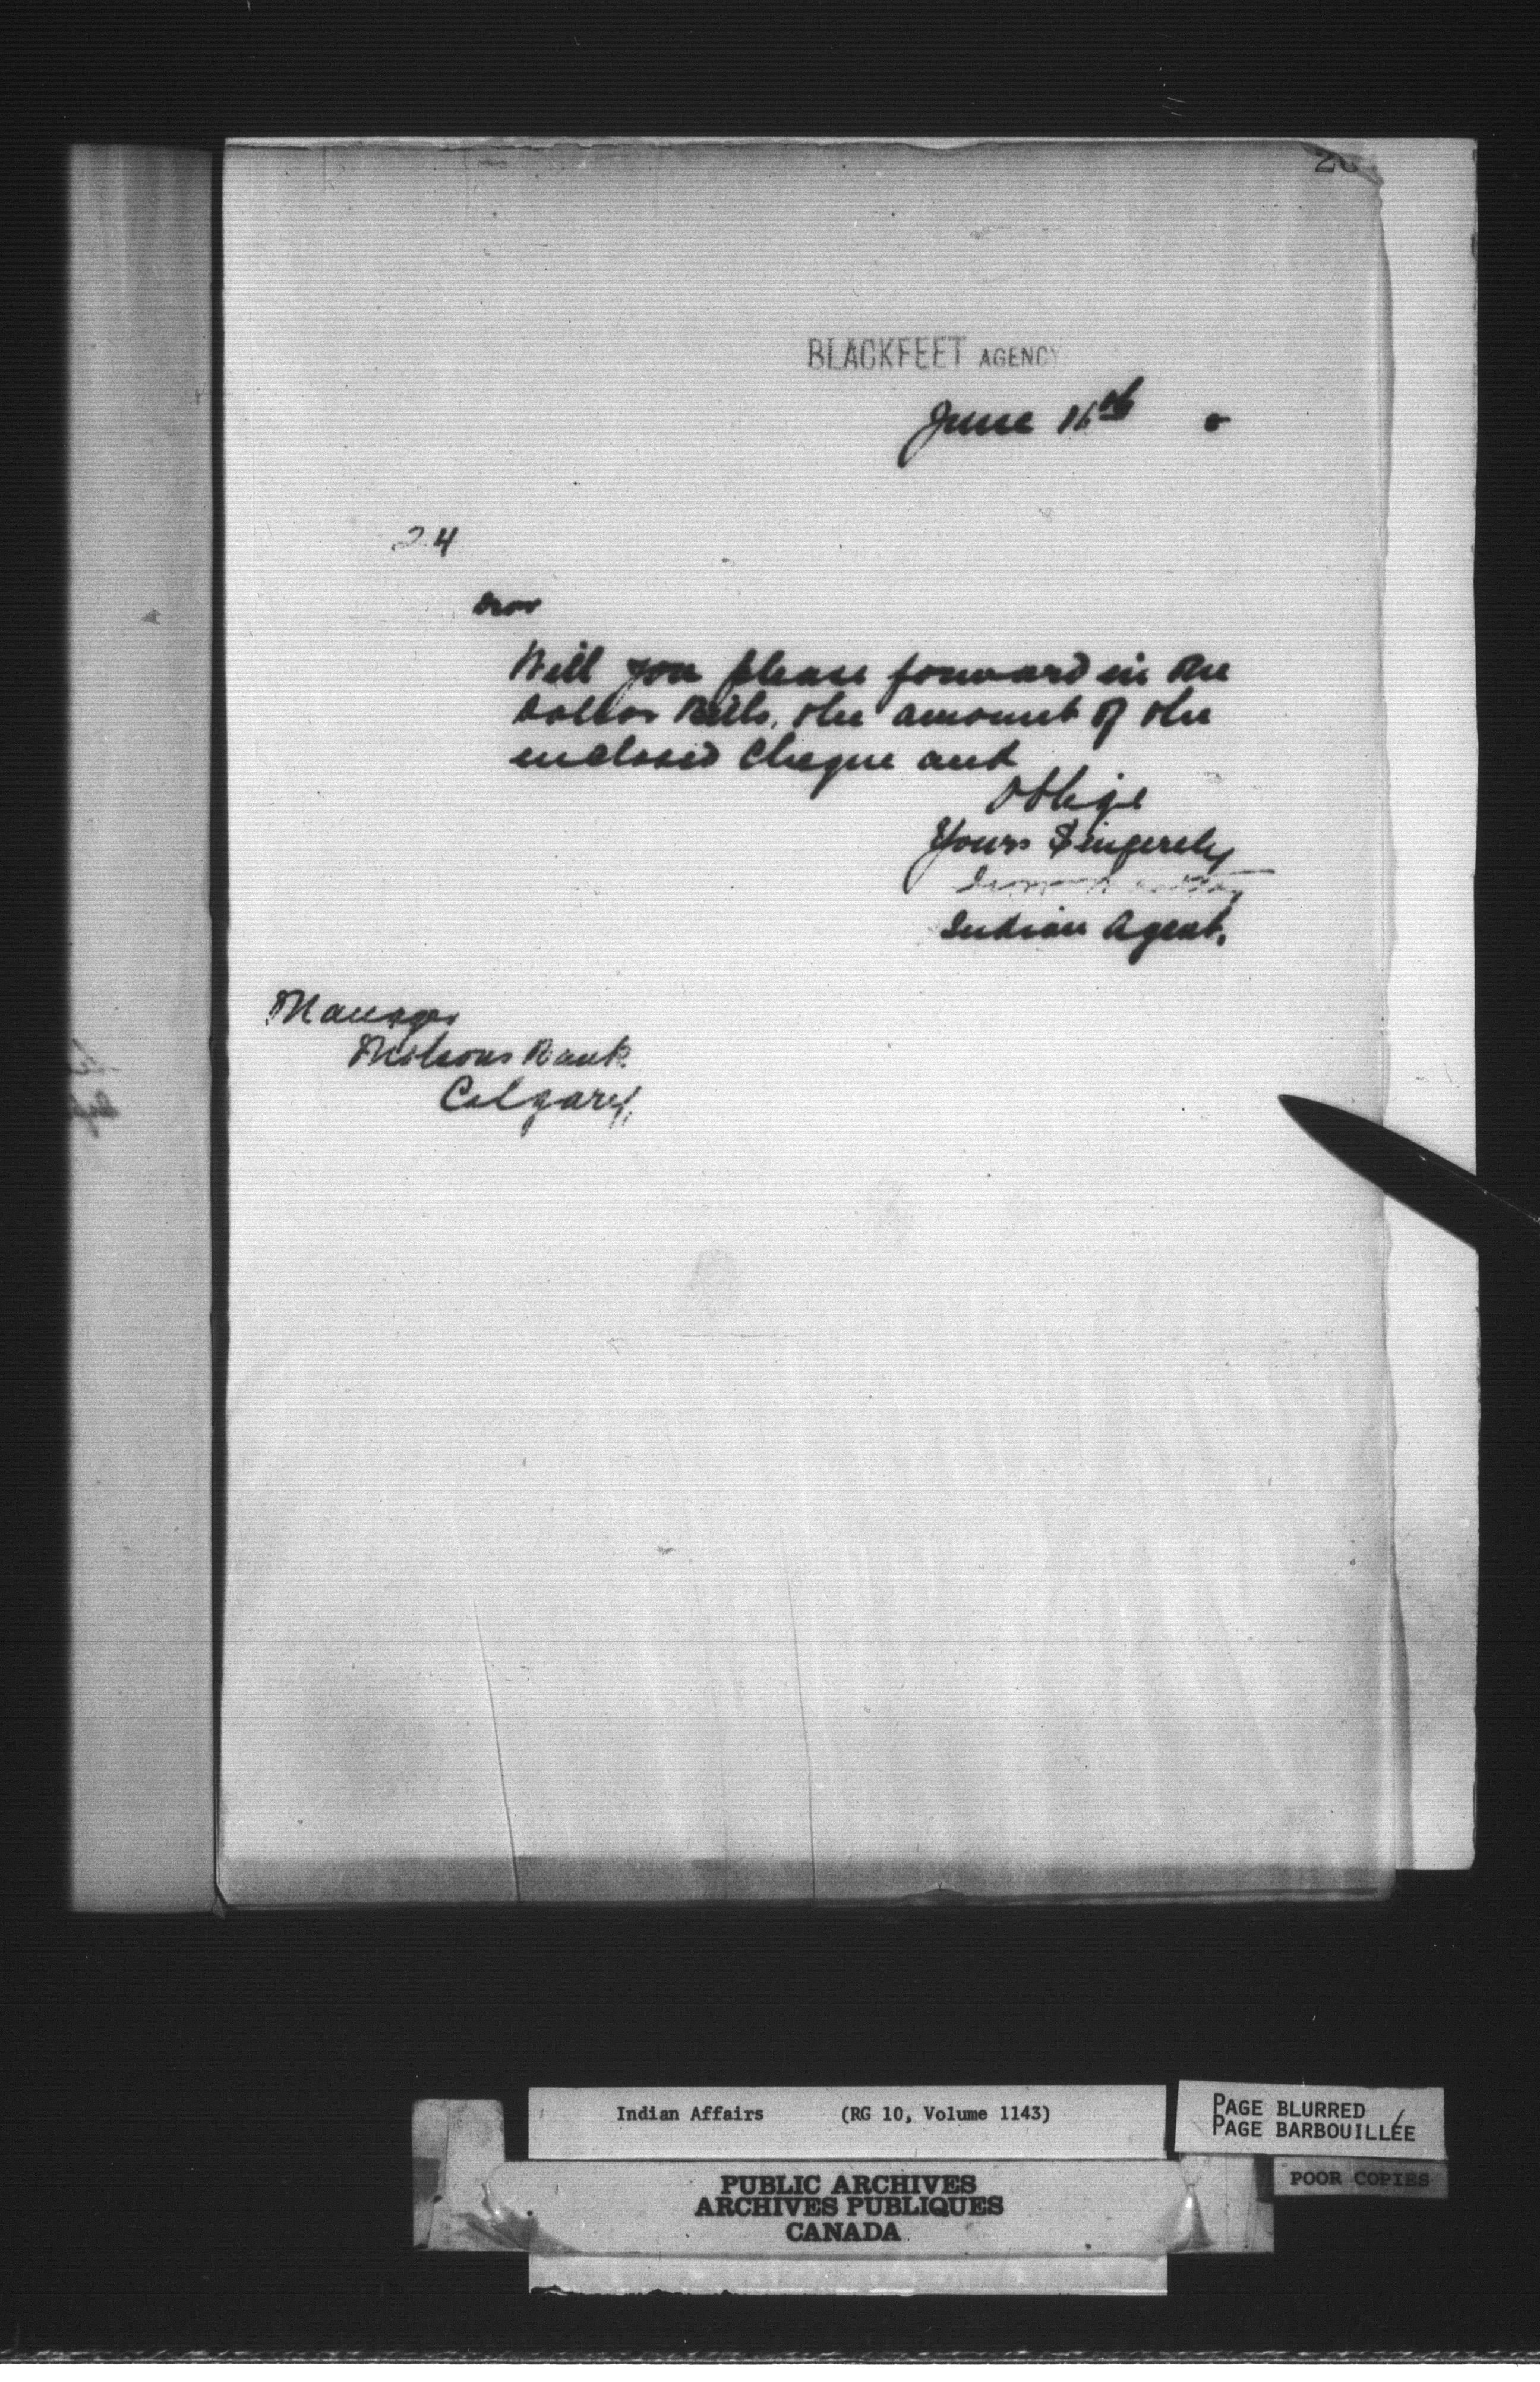 BLACKFEET AGENCY
June 16th 0
24
Will you please forward in One
Dollar Bills, the amount of the
enclosed Cheque and
Oblige
Yours Sincerely
Indian Agent.
Manager
Molsons Bank
Calgary,
Indian Affairs (RG 10, Volume 1143)
PAGE BLURRED
PAGE BARBOUILLÉE
POOR COPIES
PUBLIC ARCHIVES
ARCHIVES PUBLIQUES
CANADA